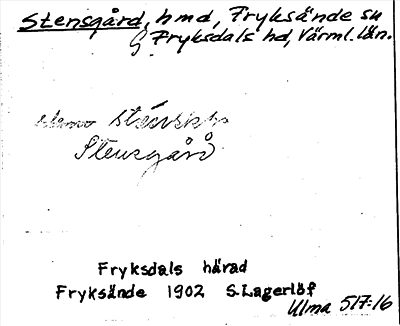 Stensgård, hmd, Fryksände sn
Fryksdals hd, Värml. län.
Stensgård
Fryksdals härad
Fryksände 1902 S. Lagerlöf
Ulma 517:16